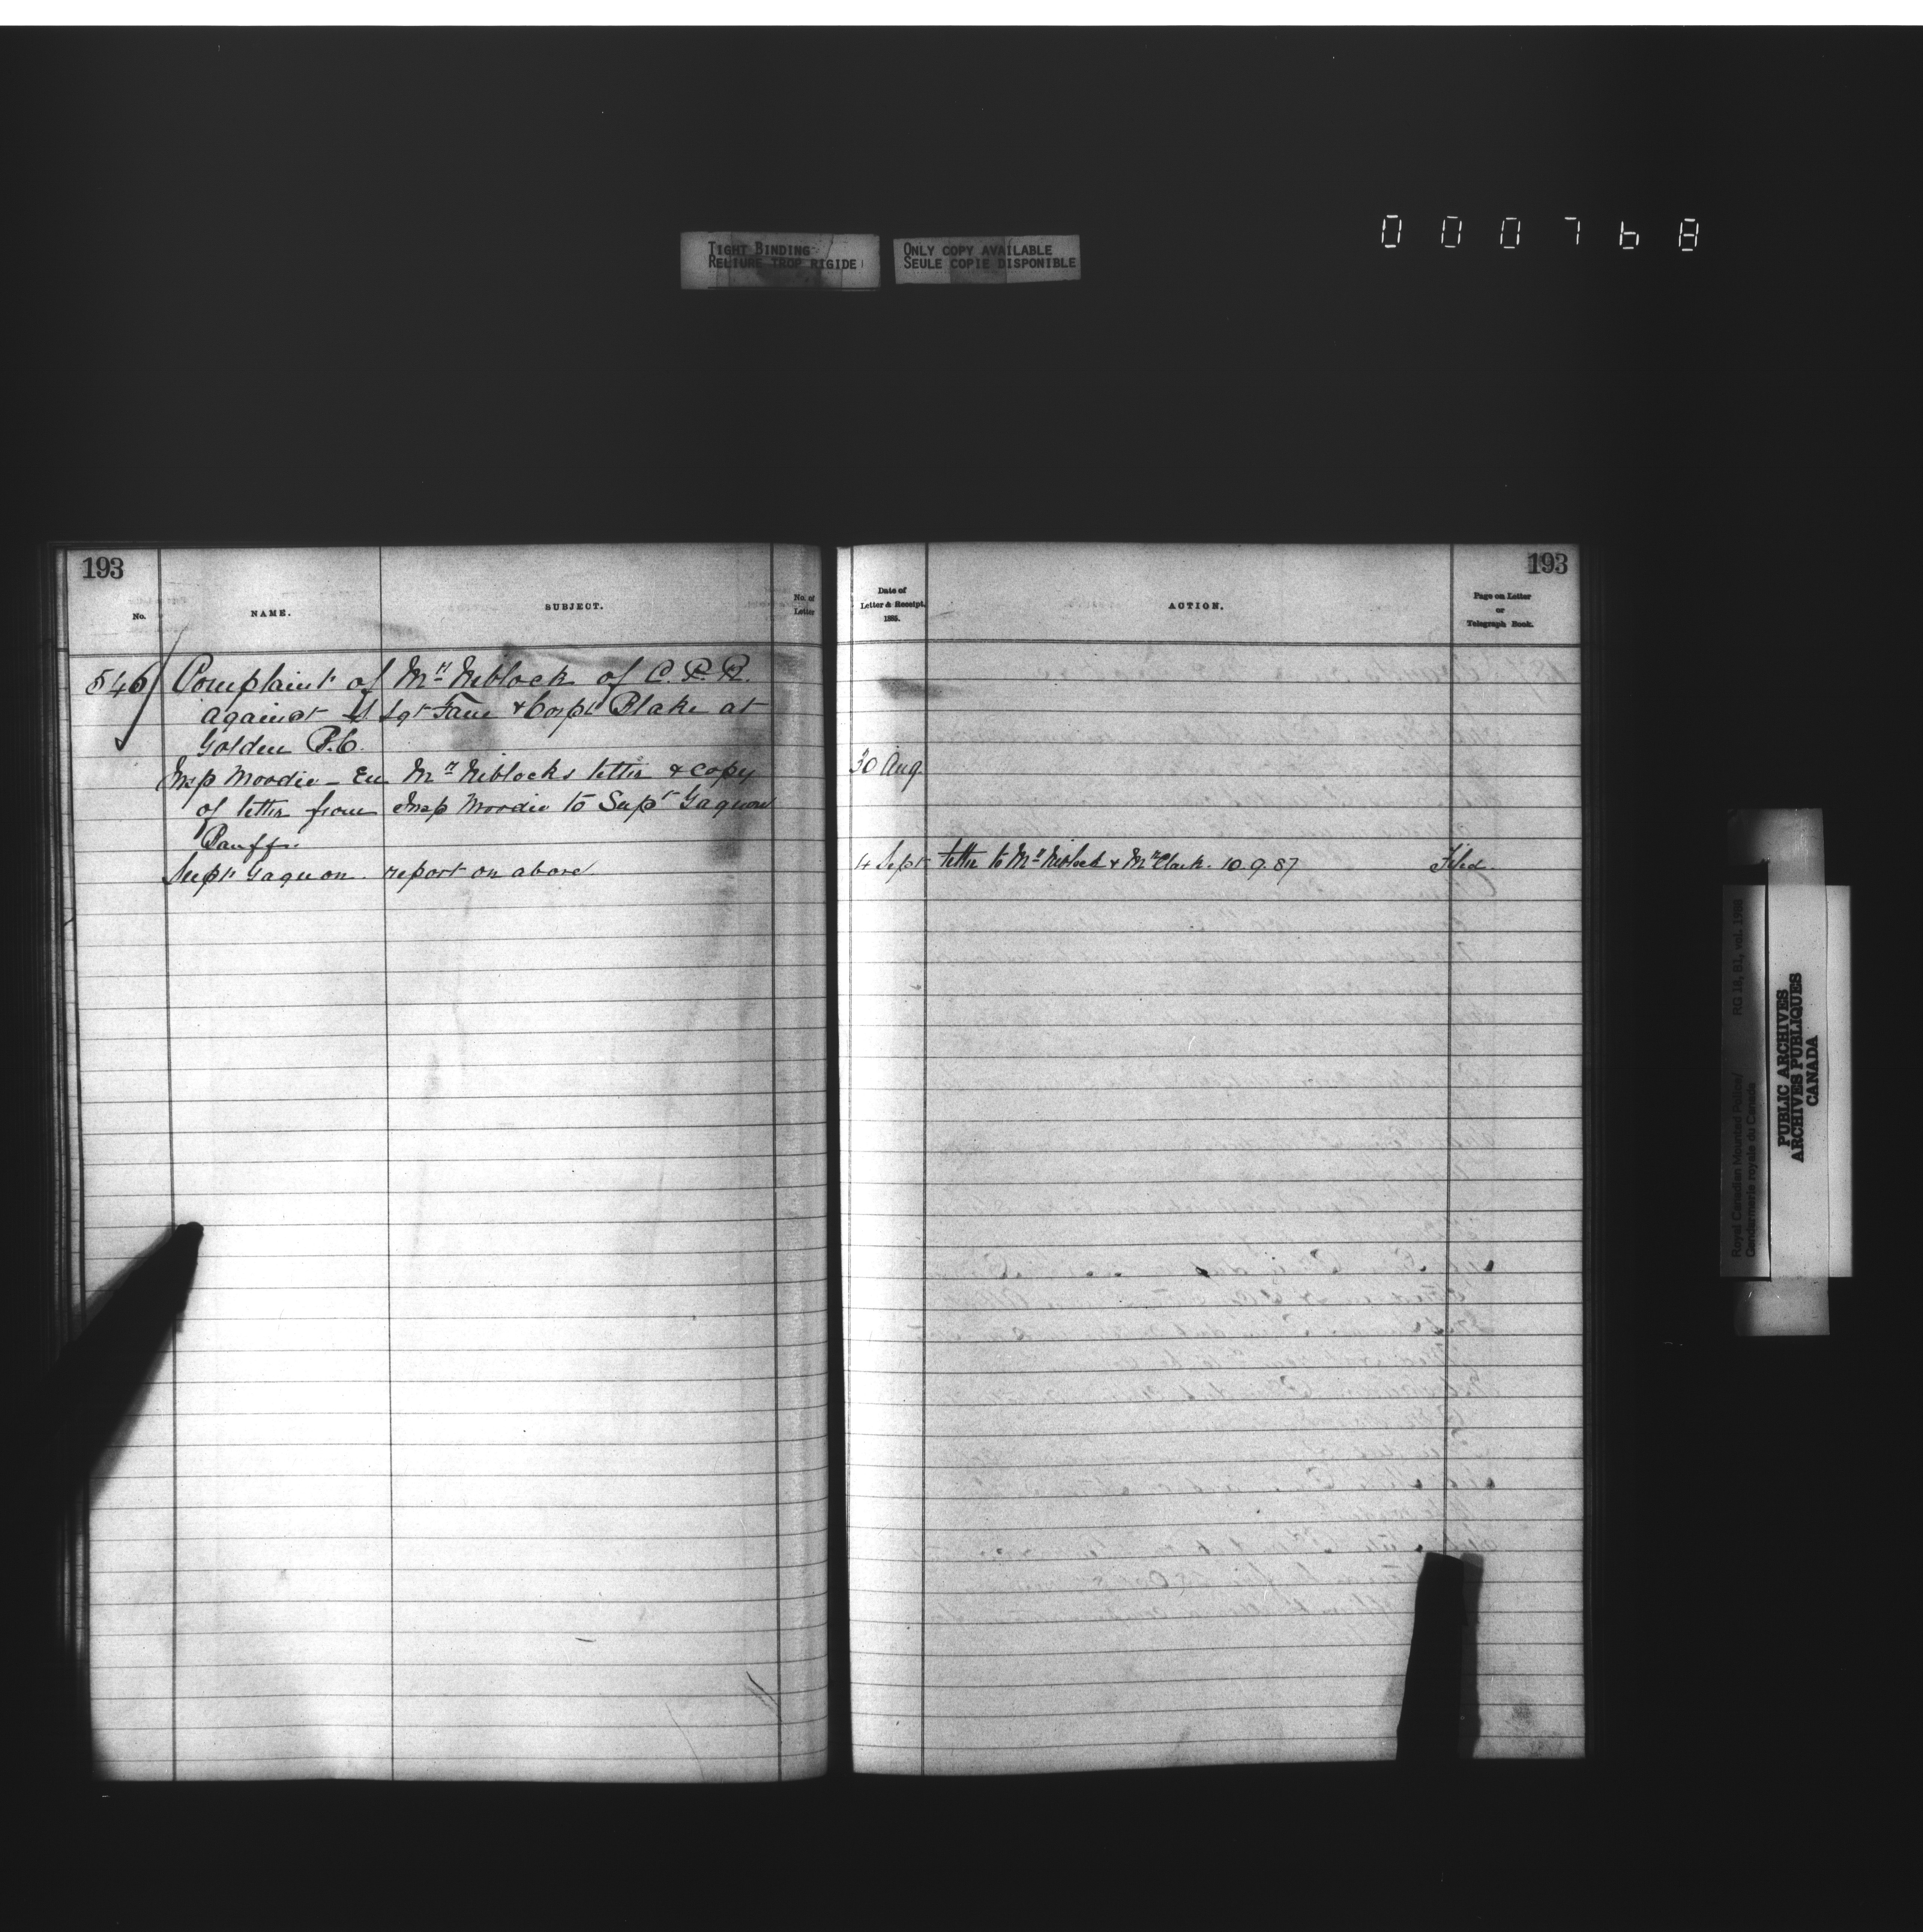 000768
TIGHT BINDING
RELIURE TROP RIGIDE
ONLY COPY AVAILABLE
SEULE COPIE DISPONIBLE
193
No.
NAME.
SUBJECT.
No. of
Letter
546 Complaint of Mr Niblock of C.P.R.
against S Sgt Fane & Corpl Blake at
Golden B.C.
Insp Moodie - En Mr Niblocks letter & copy
of letter from Insp Moodie to Supt Gagnon
Banff.
Supt Gagnon. report on above
193
Date of
Letter & Receipt.
1885.
ACTION.
Page on Letter
or
Telegraph Book.
30 Aug.
4 Sept letter to Mr Niblock & Mr Clark. 10.9.87 Filed.
Royal Canadian Mounted Police/ RG 18, B1, vol. 1988
Gendarmerie royale du Canada
PUBLIC ARCHIVES
ARCHIVES PUBLIQUES
CANADA